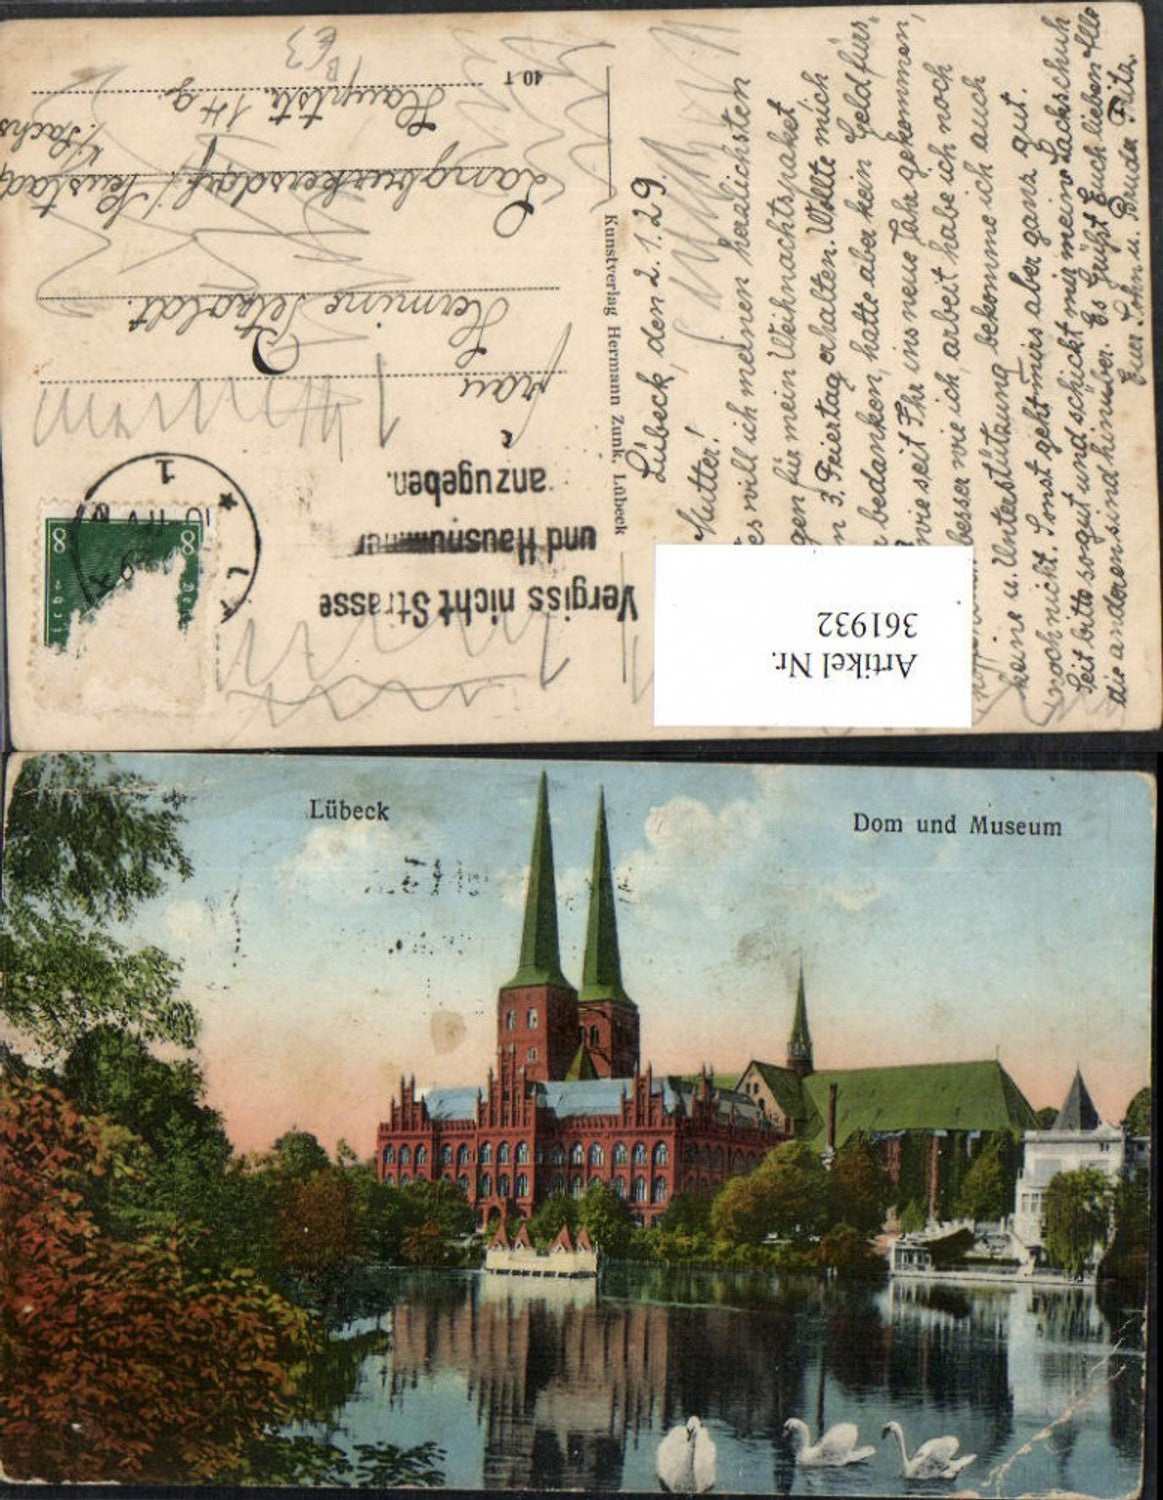 Lübeck, den 2.1.29.
Mutter!
es will ich meinen herzlichsten
gen für mein Weihnachtspaket
n 3. Feiertag erhalten. Wollte mich
bedanken, hatte aber kein Geld, fürs
wie seit Ihr ins neue Jahr gekommen,
besser wie ich, arbeit habe ich noch
keine u. Unterstützung bekomme ich auch
noch nicht. Sonst geht mirs aber ganz gut.
Seit bitte so gut und schickt mir meine Lackschuh
die anderen sind hinüber. Es Grüßt Euch lieben Alle
Euer Sohn u. Bruder Fritz.
Kunstverlag Hermann Zunk, Lübeck
Vergiss nicht Strasse
und Hausnummer
anzugeben.
8 8
1
Frau
Hermine Petzoldt.
Langburkersdorf/Neustadt
i/Sachs
Hauptstr. 14 g.
40 T
63
Artikel Nr.
361932
Lübeck
Dom und Museum